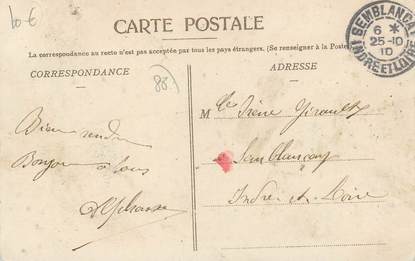 10 €
CARTE POSTALE
La correspondance au recto n'est pas acceptée par tous les pays étrangers. (Se renseigner à la Poste
CORRESPONDANCE
ADRESSE
SEMBLANÇAY
6 *
25-10
10
INDRE ET LOIRE
Mlle Irène Girault
Semblançay
Indre-et-Loire
Bien rendu
Bonjour à tous
Alphonse